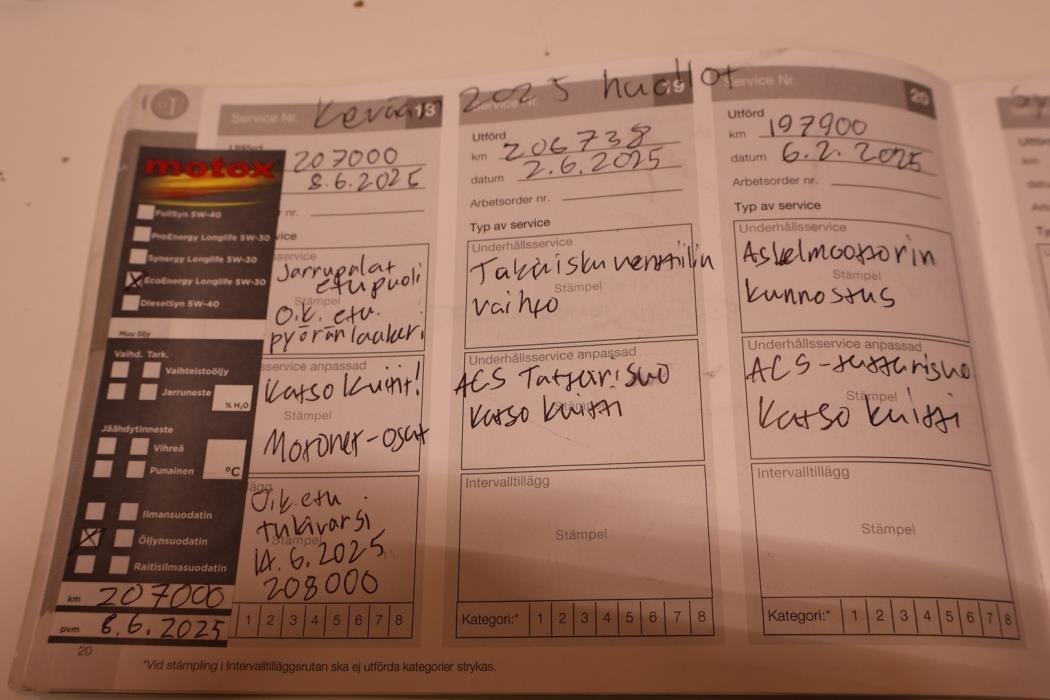 Kevään 2025 huollot
Service Nr. 18
207000
8.6.2025
nr.
vice
service
Jarrupalat
etupuoli
Stämpel
Oik. etu.
pyöränlaakeri
service anpassad
Katso kuitit!
Stämpel
Motonet-osat
Oik etu.
tukivarsi
Stämpel
14.6.2025
208000
1 2 3 4 5 6 7 8
motox
FullSyn 5W-40
ProEnergy Longlife 5W-30
Synergy Longlife 5W-30
EcoEnergy Longlife 5W-30
DieselSyn 5W-40
Muu öljy
Vaihd. Tark.
Vaihteistoöljy
Jarruneste
% H₂O
Jäähdytinneste
Vihreä
Punainen
°C
Ilmansuodatin
Öljynsuodatin
Raitisilmasuodatin
km 207000
pvm 8.6.2025
20
Service Nr. 19
Utförd
km 206738
datum 2.6.2025
Arbetsorder nr.
Typ av service
Underhållsservice
Takaiskuventtiilin
Stämpel
vaihto
Underhållsservice anpassad
ACS Tattarisuo
Katso kuitti
Intervalltillägg
Stämpel
Kategori:* 1 2 3 4 5 6 7 8
Service Nr. 20
Utförd
km 197900
datum 6.2.2025
Arbetsorder nr.
Typ av service
Underhållsservice
Askelmoottorin
Stämpel
kunnostus
Underhållsservice anpassad
ACS-tattarisuo
Stämpel
Katso kuitti
Intervalltillägg
Stämpel
Kategori:* 1 2 3 4 5 6 7 8
*Vid stämpling i Intervalltilläggsrutan ska ej utförda kategorier strykas.